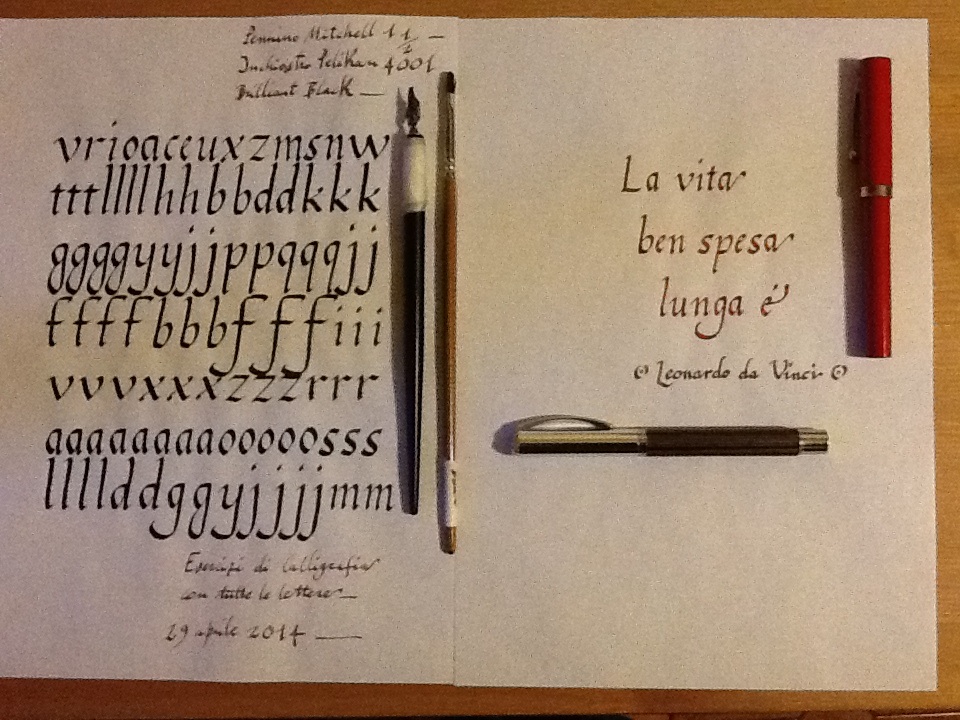 Pennino Mitchell 1 1/2 —
Inchiostro Pelikan 4001
Brilliant Black —
vrioaceuxzmsnw
tttllllhhbbddkkk
ggggyyjjppqqqjj
ffffbbbfffiii
vvvxxxzzzrrr
aaaaaaaaooooosss
lllllddggyjjjjmm
Esercizi di Calligrafia
con tutte le lettere —
29 aprile 2014 —
La vita
ben spesa
lunga é
Leonardo da Vinci